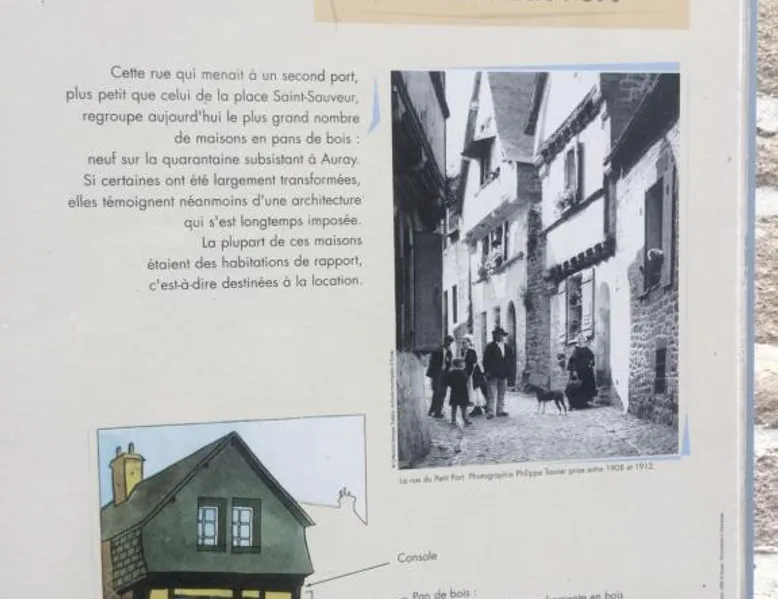 Cette rue qui menait à un second port,
plus petit que celui de la place Saint-Sauveur,
regroupe aujourd'hui le plus grand nombre
de maisons en pans de bois :
neuf sur la quarantaine subsistant à Auray.
Si certaines ont été largement transformées,
elles témoignent néanmoins d'une architecture
qui s'est longtemps imposée.
La plupart de ces maisons
étaient des habitations de rapport,
c'est-à-dire destinées à la location.
La rue du Petit Port. Photographie Philippe Tassier prise entre 1908 et 1912.
Console
Pan de bois :
en bois